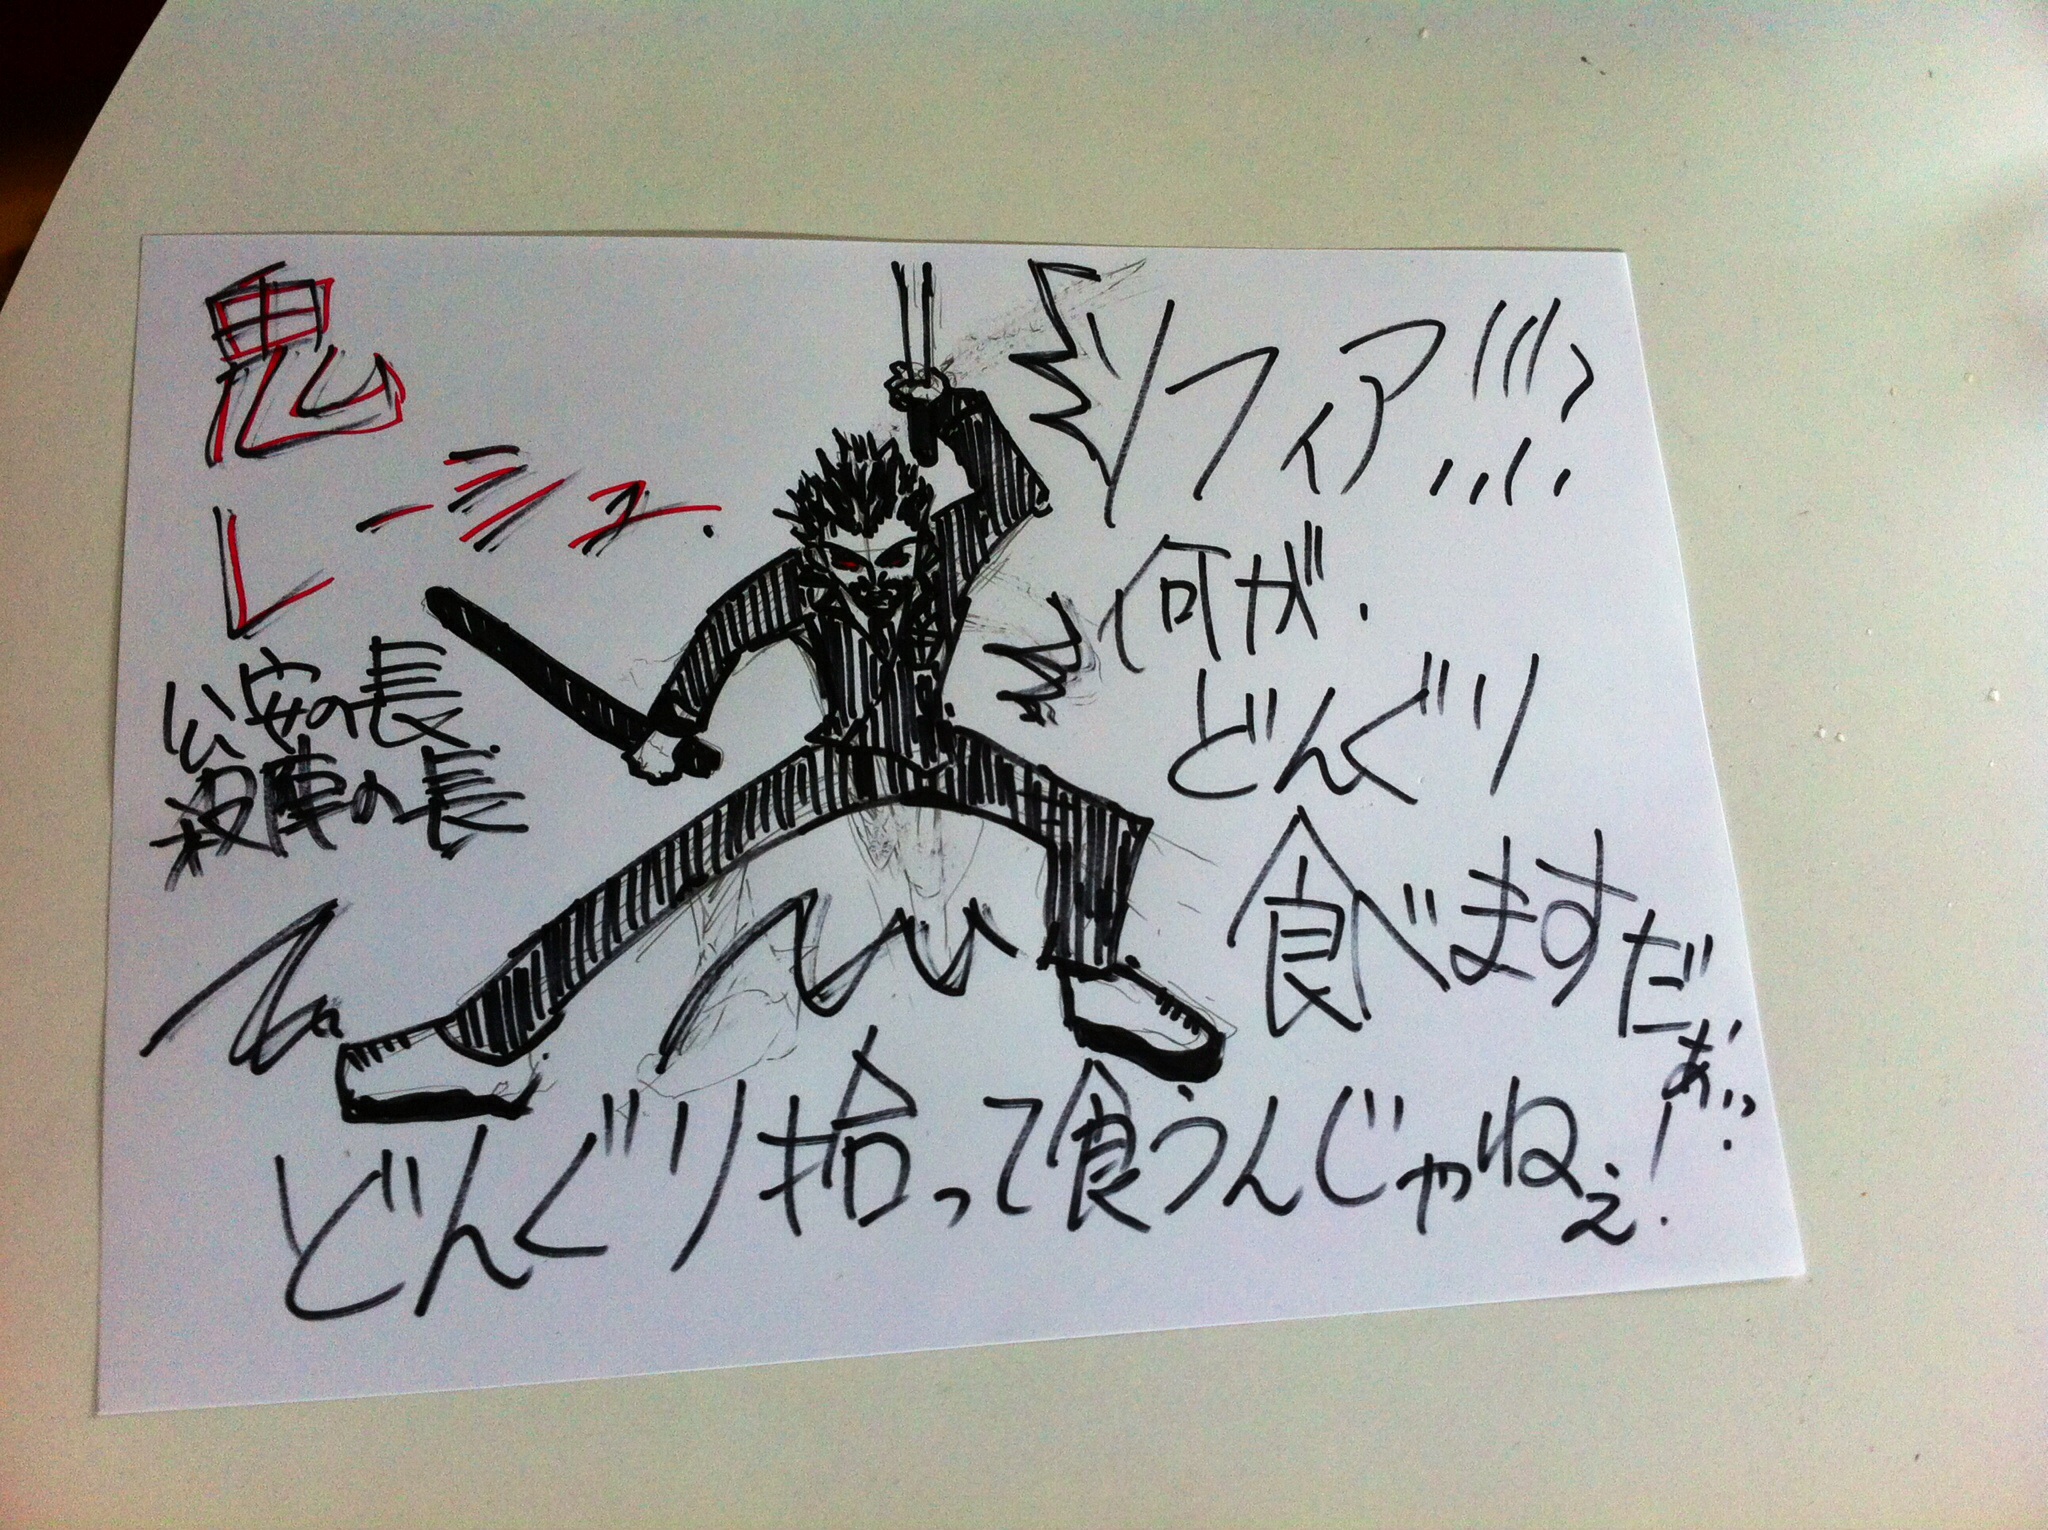 鬼
レーシュ.
公安の長
殺陣の長
ソフィア!!!
何が.
どんぐり
食べます
だ
ぁ!?
どんぐり拾って食うんじゃねぇ!